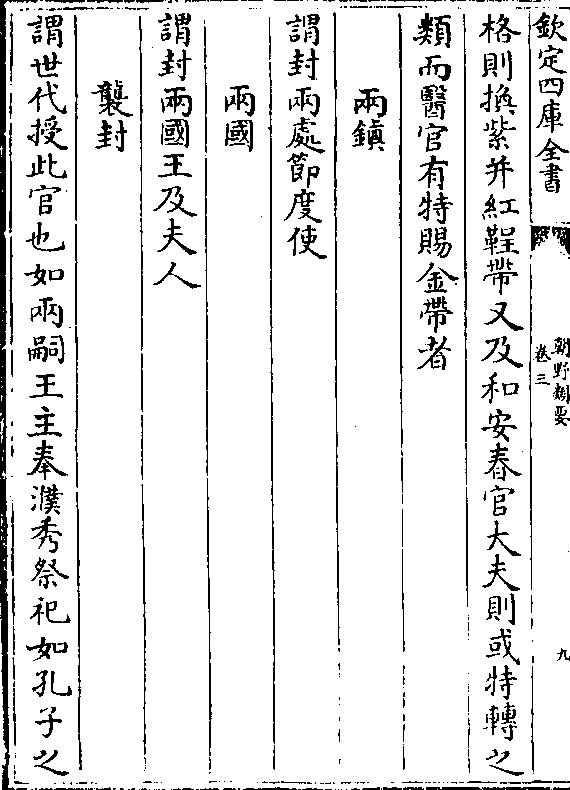 欽定四庫全書
朝野類要
卷三
九
格則換紫并紅鞓帶又及和安春官大夫則或特轉之
類而醫官有特賜金帶者
兩鎮
謂封兩處節度使
兩國
謂封兩國王及夫人
襲封
謂世代授此官也如兩嗣王主奉濮秀祭祀如孔子之